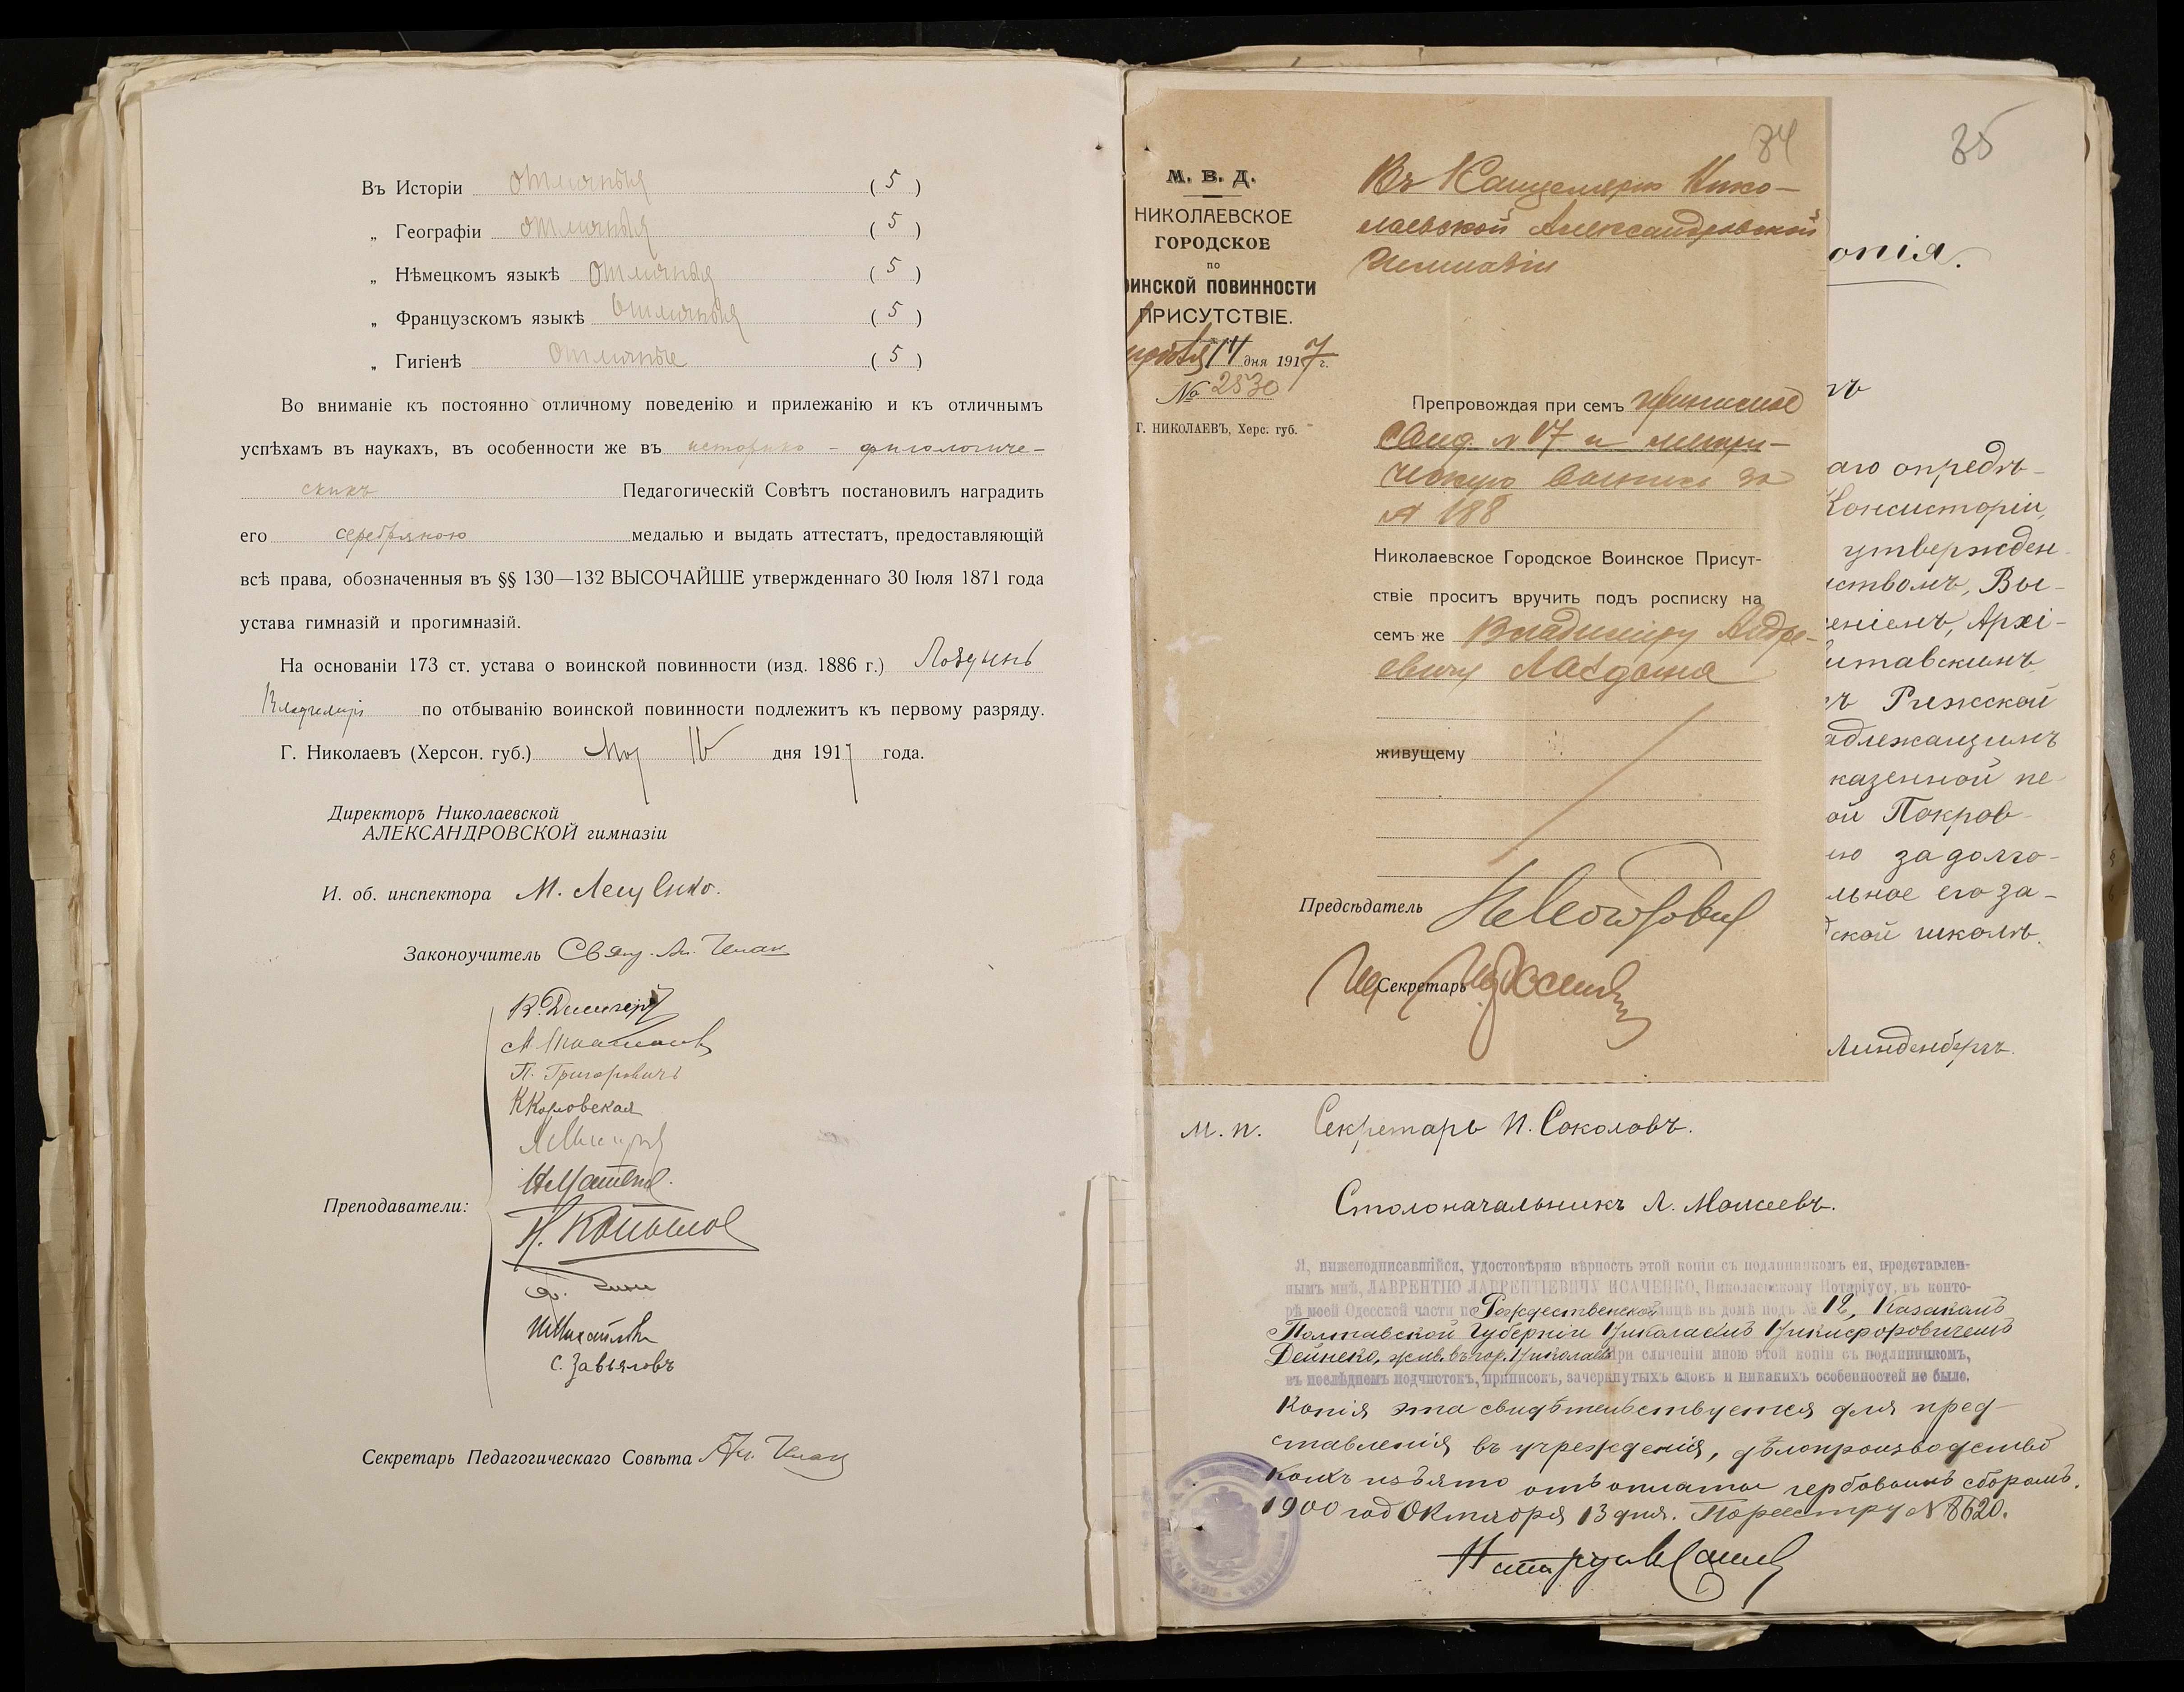 Въ Исторіи отличныя ( 5 )
„ Географіи отличныя ( 5 )
„ Нѣмецкомъ языкѣ отличныя ( 5 )
„ Французскомъ языкѣ отличныя ( 5 )
„ Гигіенѣ отличные ( 5 )
Во вниманіе къ постоянно отличному поведенію и прилежанію и къ отличнымъ
успѣхамъ въ наукахъ, въ особенности же въ историко - филологиче-
скихъ Педагогическій Совѣтъ постановилъ наградить
его серебряною медалью и выдать аттестатъ, предоставляющій
всѣ права, обозначенныя въ §§ 130—132 ВЫСОЧАЙШЕ утвержденнаго 30 Іюля 1871 года
устава гимназій и прогимназій.
На основаніи 173 ст. устава о воинской повинности (изд. 1886 г.) Лоздынь
Владиміръ по отбыванію воинской повинности подлежитъ къ первому разряду.
Г. Николаевъ (Херсон. губ.) Мая 16 дня 1917 года.
Директоръ Николаевской
АЛЕКСАНДРОВСКОЙ гимназіи
И. об. инспектора М. Лещенко.
Законоучитель Свящ. Ан.
П. Григоровичъ
К Карловская
Преподаватели:
С. Завьяловъ
Секретарь Педагогическаго Совѣта Ан.
84
М. В. Д.
НИКОЛАЕВСКОЕ
ГОРОДСКОЕ
ПО
ОИНСКОЙ ПОВИННОСТИ
ПРИСУТСТВІЕ.
14 дня 1917 г.
№ 2530
Г. НИКОЛАЕВЪ, Херс. губ.
Въ Канцелярію Нико-
лаевской Александровской
Гимназіи
Препровождая при семъ приписное
свид. № 17 и метри-
ческую выпись за
№ 188
Николаевское Городское Воинское Присут-
ствіе проситъ вручить подъ росписку на
семъ же Владиміру Андре-
евичу Лаздына
живущему
Предсѣдатель
Секретарь
35
опія.
аго опредѣ-
Консисторіи,
утвержден
ствомъ, Вы-
еніемъ, Архі-
итавскимъ
Рижской
адлежащимъ
казенной пе
ой Покров-
ею за долго-
льное его за-
ской школѣ.
Линденбергъ.
М. п. Секретарь И. Соколовъ.
Столоначальникъ Л. Моисеевъ.
Я, нижеподписавшійся, удостовѣряю вѣрность этой копіи съ подлинникомъ ея, представлен-
нымъ мнѣ, ЛАВРЕНТІЮ ЛАВРЕНТІЕВИЧУ ИСАЧЕНКО, Николаевскому Нотаріусу, въ конто-
рѣ моей Одесской части по Рождественской улицѣ въ домѣ подъ № 12, Казакомъ
Полтавской Губерніи Николаемъ Никифоровичемъ
Дейнеко, жив. въ гор. Николаевѣ при сличеніи мною этой копіи съ подлинникомъ,
въ послѣднемъ подчистокъ, приписокъ, зачеркнутыхъ словъ и никакихъ особенностей не было.
Копія эта свидѣтельствуется для пред-
ставленія въ учрежденія, дѣлопроизводство
коихъ изъято отъ оплаты гербовымъ сборомъ.
1900 год Октября 13 дня. По реестру № 8620.